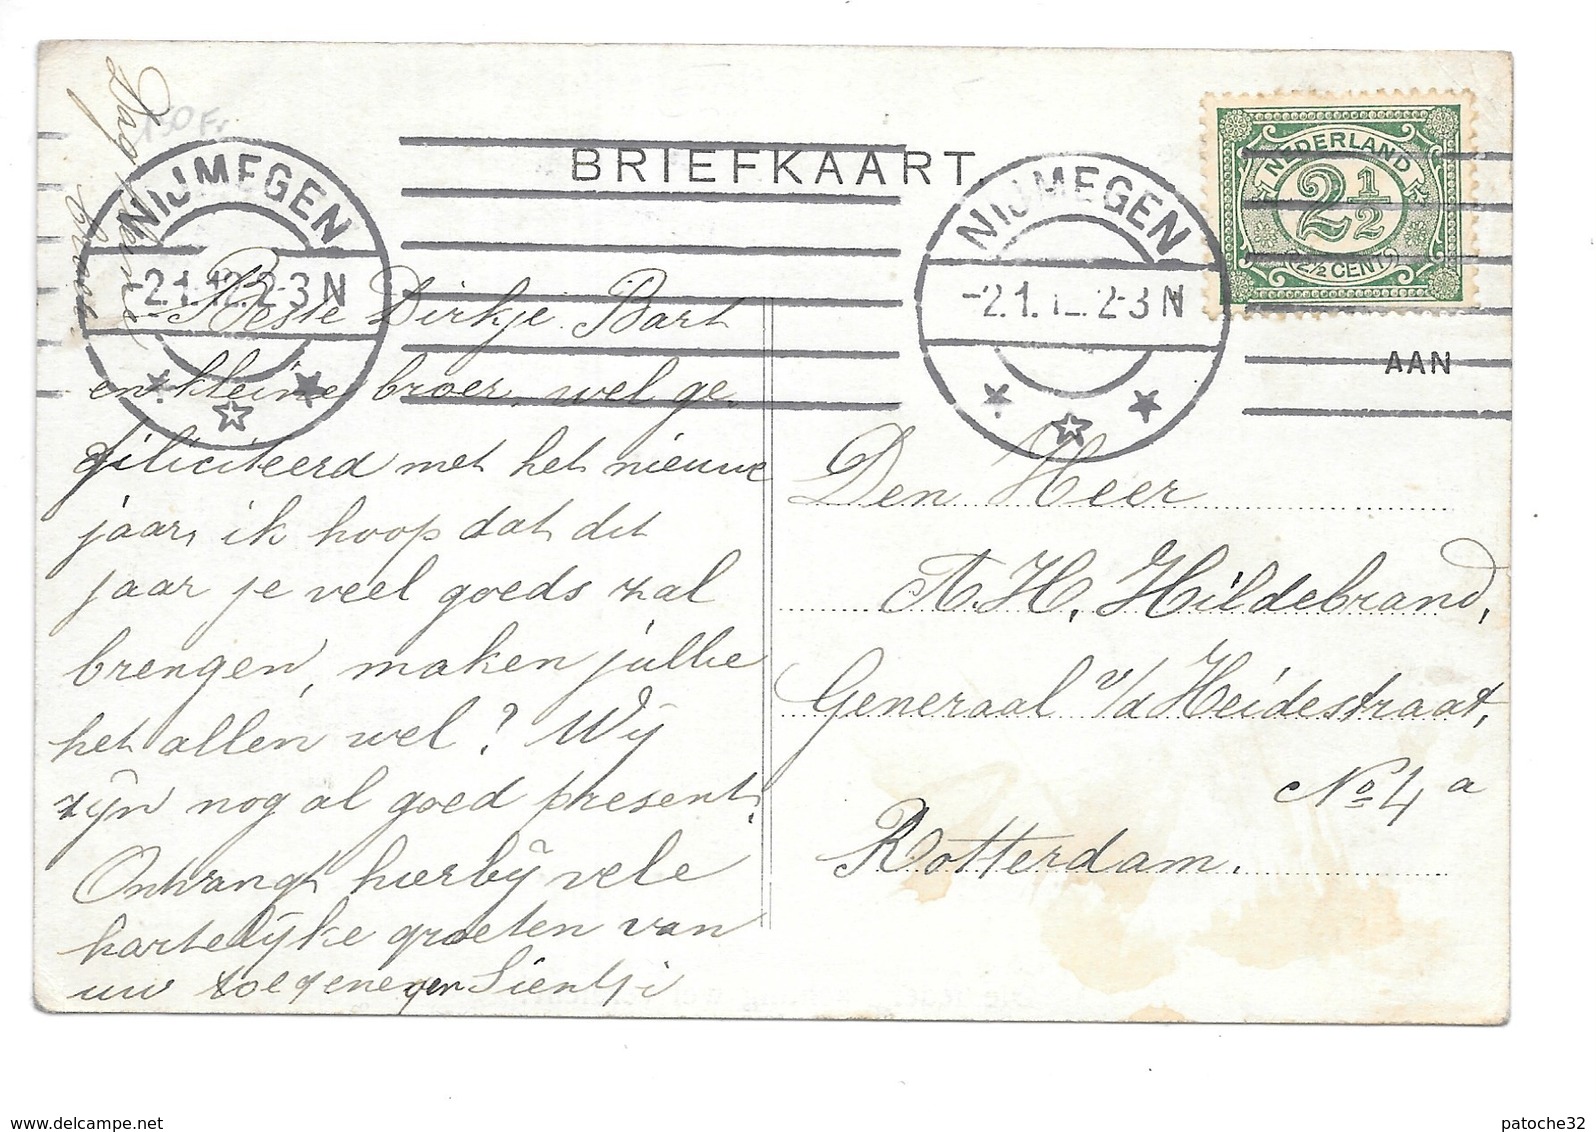 BRIEFKAART
NIJMEGEN
-2.1.12.2-3N
NIJMEGEN
-2.1.1 2-3N
NEDERLAND
2½
2½ CENT
AAN
150 Fr
Dag kleine
broer.
Beste Dirkje Bart
en kleine broer, wel ge.
filiciteerd met het nieuwe
jaar, ik hoop dat dit
jaar je veel goeds zal
brengen, maken jullie
het allen wel? Wij
zijn nog al goed present.
Ontvangt hierbij vele
hartelijke groeten van
uw toegenegen Sientji
Den Heer
A.H. Hildebrand,
Generaal v/d Heidestraat,
No 4a
Rotterdam.
www.delcampe.net
patoche32